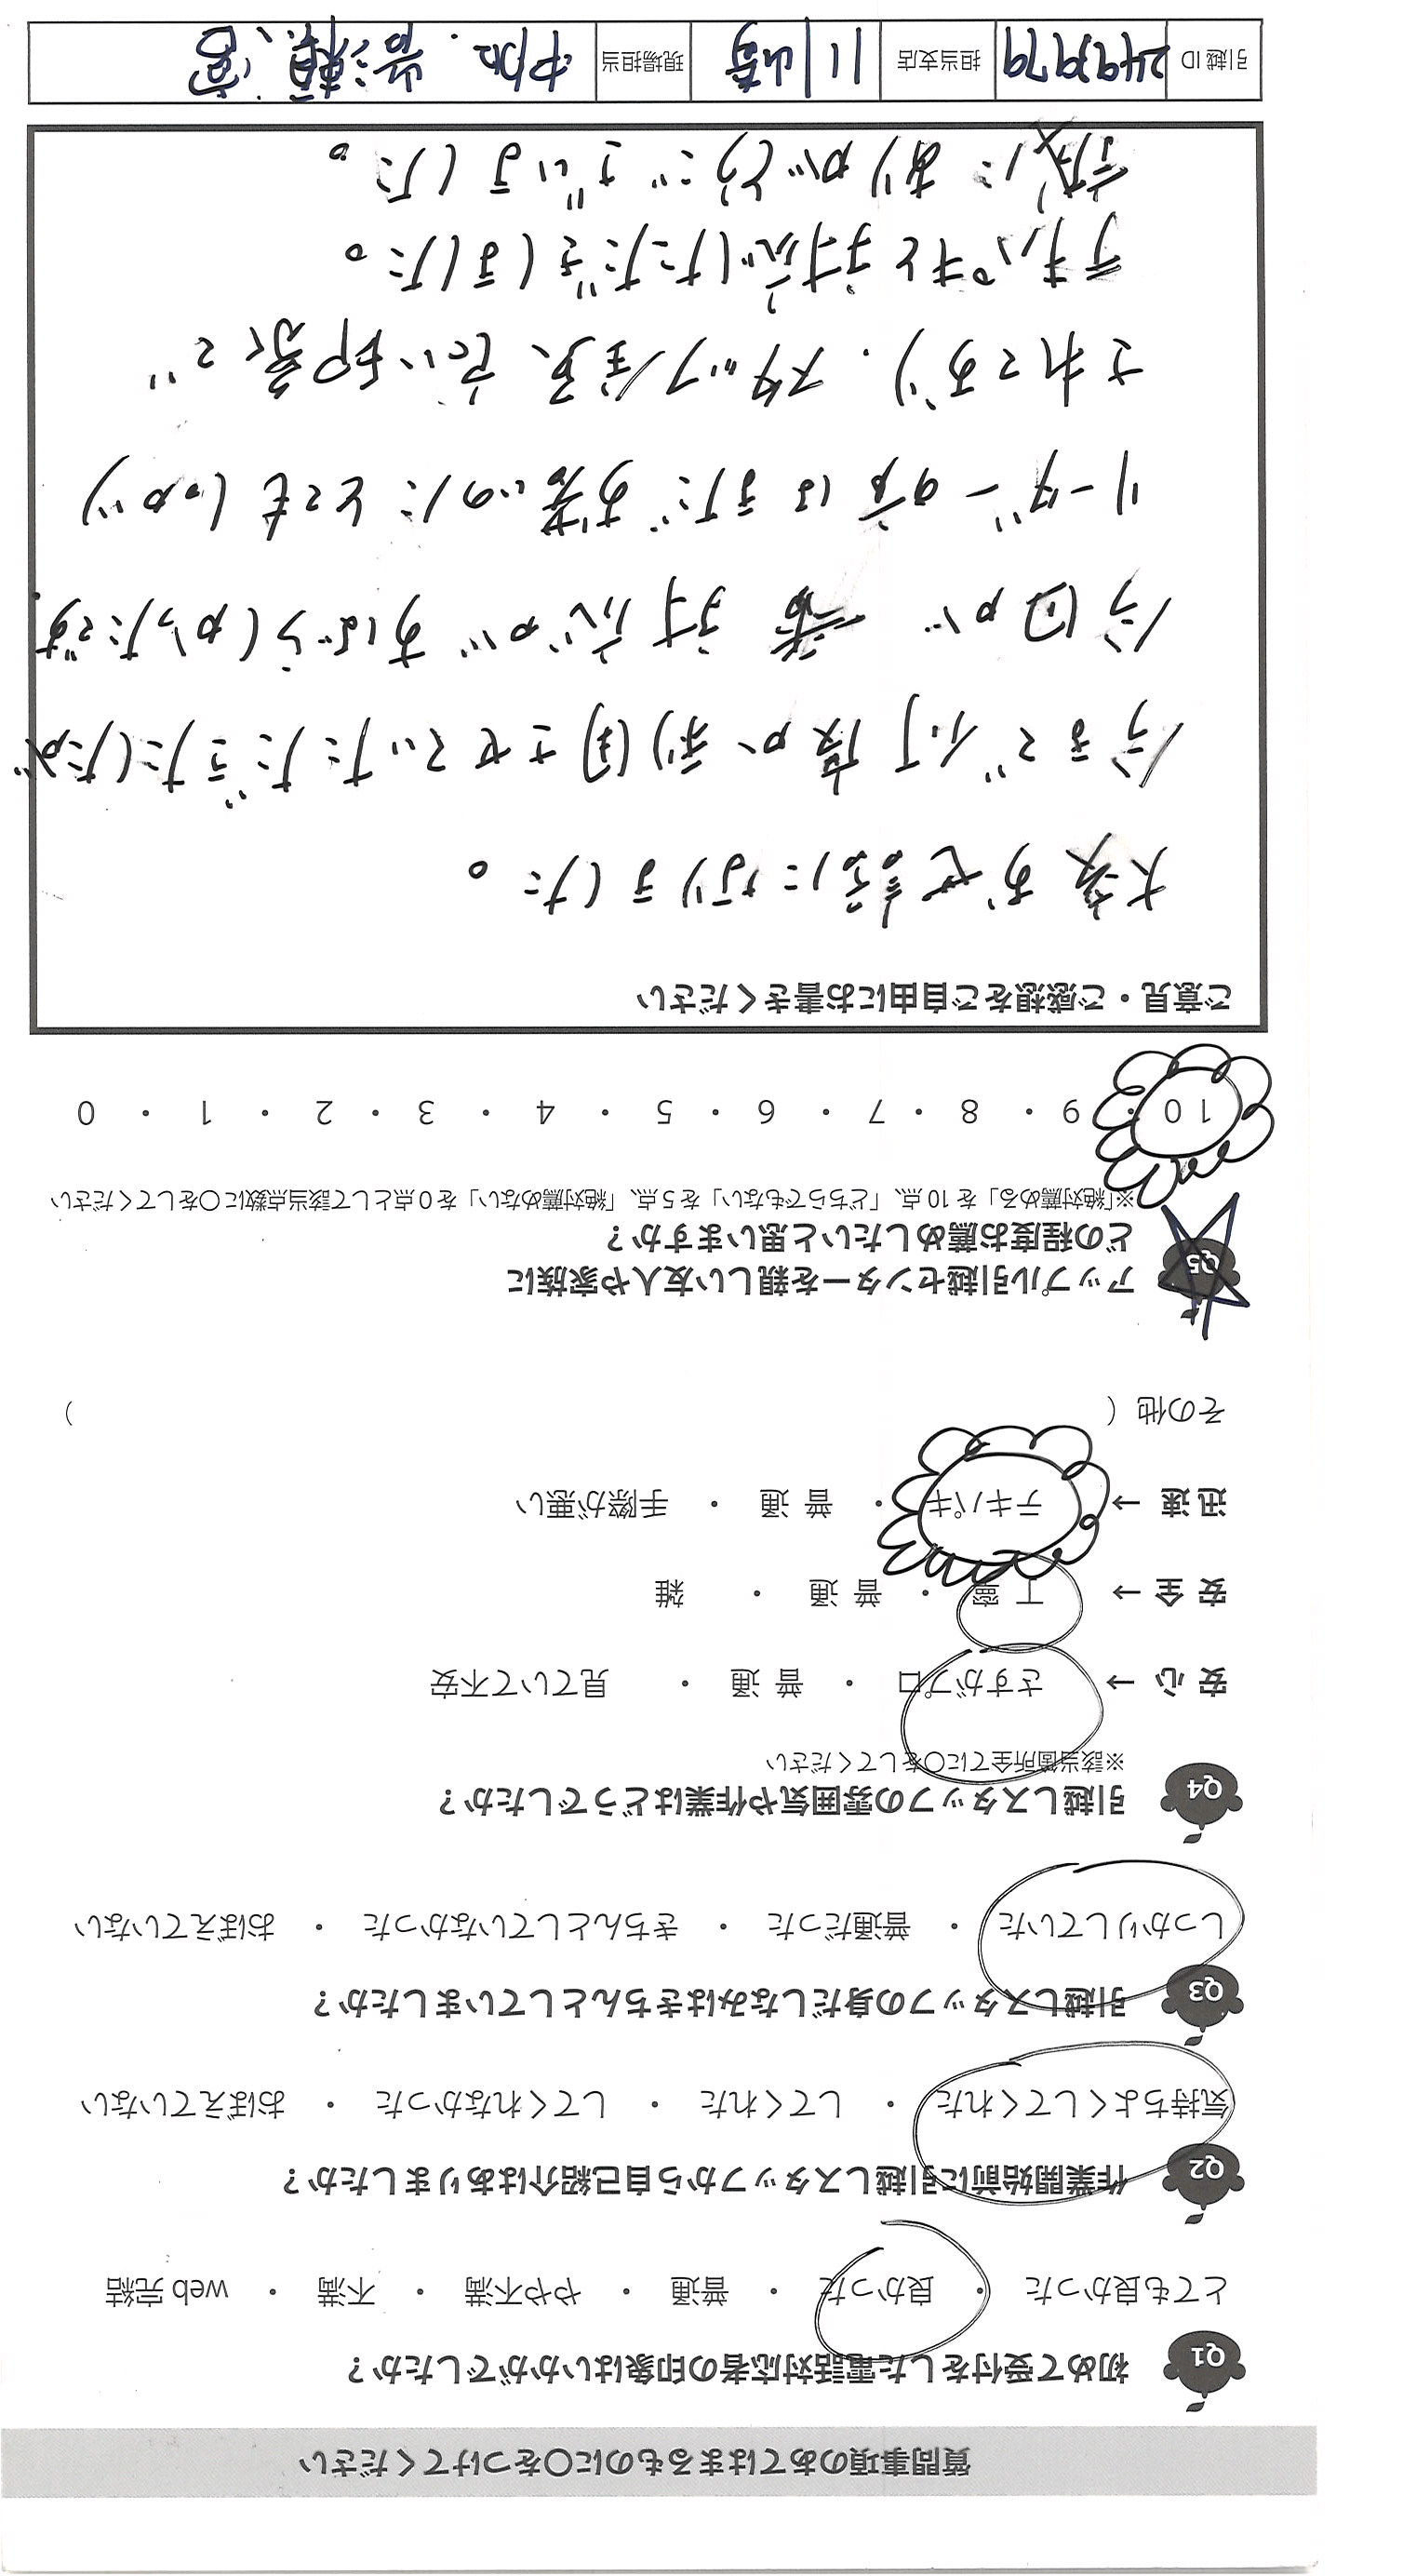 質問事項のあてはまるものに〇をつけてください
Q1 初めて受付をした電話対応者の印象はいかがでしたか？
とても良かった ・ 良かった ・ 普通 ・ やや不満 ・ 不満 ・ web 完結
Q2 作業開始前に引越しスタッフから自己紹介はありましたか？
気持ちよくしてくれた ・ してくれた ・ してくれなかった ・ おぼえていない
Q3 引越しスタッフの身だしなみはきちんとしていましたか？
しっかりしていた ・ 普通だった ・ きちんとしていなかった ・ おぼえていない
Q4 引越しスタッフの雰囲気や作業はどうでしたか？
※該当箇所全てに〇をしてください
安 心 → さすがプロ ・ 普 通 ・ 見ていて不安
安 全 → 丁 寧 ・ 普 通 ・ 雑
迅 速 → テキパキ ・ 普 通 ・ 手際が悪い
その他（ ）
Q5 アップル引越センターを親しい友人や家族に
どの程度お薦めしたいと思いますか？
※「絶対薦める」を 10 点、「どちらでもない」を 5 点、「絶対薦めない」を 0 点として該当点数に〇をしてください
10 ・ 9 ・ 8 ・ 7 ・ 6 ・ 5 ・ 4 ・ 3 ・ 2 ・ 1 ・ 0
ご意見・ご感想をご自由にお書きください
大変お世話になりました。
今まで何度か利用させていただきましたが
今回が一番対応がすばらしかったです。
リーダーの方はまだお若いのにとてもしっかり
されており、スタッフ全員、良い印象で
テキパキと対応いただきました。
誠にありがとうございました。
引越 ID 担当支店 川崎 現場担当